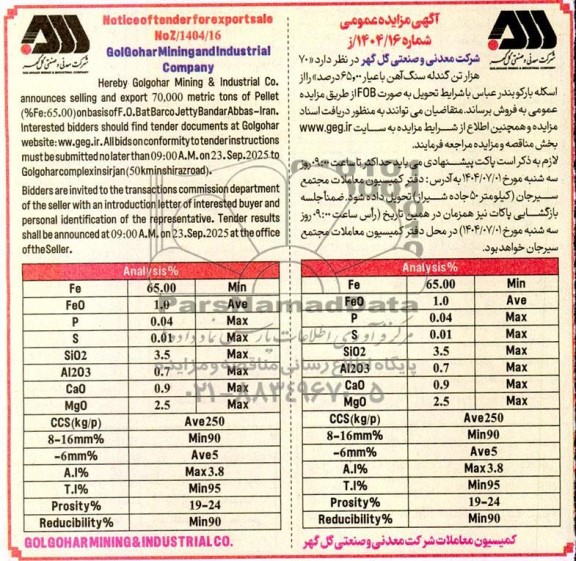 Notice of tender for export sale
No Z/1404/16
GolGohar Mining and Industrial
Company
شرکت معدنی و صنعتی گل گهر
Hereby Golgohar Mining & Industrial Co.
announces selling and export 70,000 metric tons of Pellet
(%Fe:65.00) on basis of F.O.Bat Barco Jetty Bandar Abbas–Iran.
Interested bidders should find tender documents at Golgohar
website: www.geg.ir. All bids on conformity to tender instructions
must be submitted no later than 09:00 A.M. on 23. Sep. 2025 to
Golgohar complex in sirjan (50km in shiraz road).
Bidders are invited to the transactions commission department
of the seller with an introduction letter of interested buyer and
personal identification of the representative. Tender results
shall be announced at 09:00 A.M. on 23.Sep.2025 at the office
of the Seller.
Analysis%
Fe 65.00 Min
FeO 1.0 Ave
P 0.04 Max
S 0.01 Max
SiO2 3.5 Max
Al2O3 0.7 Max
CaO 0.9 Max
MgO 2.5 Max
CCS(kg/p) Ave250
8-16mm% Min90
-6mm% Ave5
A.I% Max3.8
T.I% Min95
Prosity% 19-24
Reducibility% Min90
GOLGOHAR MINING & INDUSTRIAL CO.
آگهی مزایده عمومی
شماره ۱۴۰۴/۱۶/ز
شرکت معدنی و صنعتی گل گهر
شرکت معدنی و صنعتی گل گهر در نظر دارد «۷۰
هزار تن گندله سنگ آهن با عیار ۶۵,۰۰ درصد» را از
اسکله بارکو بندر عباس با شرایط تحویل به صورت FOB از طریق مزایده
عمومی به فروش برساند. متقاضیان می توانند به منظور دریافت اسناد
مزایده و همچنین اطلاع از شرایط مزایده به سایت www.geg.ir
بخش مناقصه و مزایده مراجعه فرمایند.
لازم به ذکر است پاکت پیشنهادی می باید حداکثر تا ساعت ۰۹:۰۰ روز
سه شنبه مورخ ۱۴۰۴/۰۷/۰۱ به آدرس: دفتر کمیسیون معاملات مجتمع
سیرجان (کیلومتر ۵۰ جاده شیراز) تحویل داده شود. ضمناً جلسه
بازگشایی پاکات نیز همزمان در همین تاریخ (رأس ساعت ۰۹:۰۰ روز
سه شنبه مورخ ۱۴۰۴/۰۷/۰۱) در محل دفتر کمیسیون معاملات مجتمع
سیرجان خواهد بود.
Analysis%
Fe 65.00 Min
FeO 1.0 Ave
P 0.04 Max
S 0.01 Max
SiO2 3.5 Max
Al2O3 0.7 Max
CaO 0.9 Max
MgO 2.5 Max
CCS(kg/p) Ave250
8-16mm% Min90
-6mm% Ave5
A.I% Max3.8
T.I% Min95
Prosity% 19-24
Reducibility% Min90
کمیسیون معاملات شرکت معدنی و صنعتی گل گهر
ParsNamadData
پایگاه اطلاع رسانی مناقصه و مزایده
۰۲۱-۸۸۳۴۹۶۷۰-۵